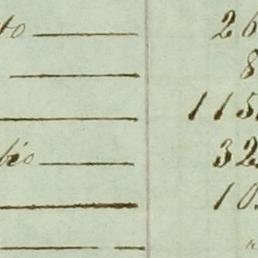 to 26
8
115
bio 32
10